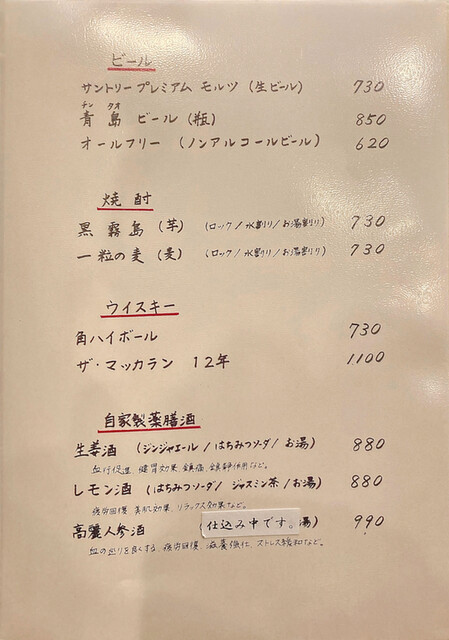 ビール
サントリー プレミアム モルツ (生ビール) 730
チン タオ
青島 ビール (瓶) 850
オールフリー (ノンアルコールビール) 620
焼酎
黒霧島 (芋) (ロック / 水割り / お湯割り) 730
一粒の麦 (麦) (ロック / 水割り / お湯割り) 730
ウイスキー
角ハイボール 730
ザ・マッカラン 12年 1100
自家製薬膳酒
生姜酒 (ジンジャエール / はちみつソーダ / お湯) 880
血行促進、健胃効果、鎮痛、鎮静作用など。
レモン酒 (はちみつソーダ / ジャスミン茶 / お湯) 880
疲労回復、美肌効果、リラックス効果など。
高麗人参酒 仕込み中です。湯) 990
血の巡りを良くする、疲労回復、滋養強化、ストレス緩和など。